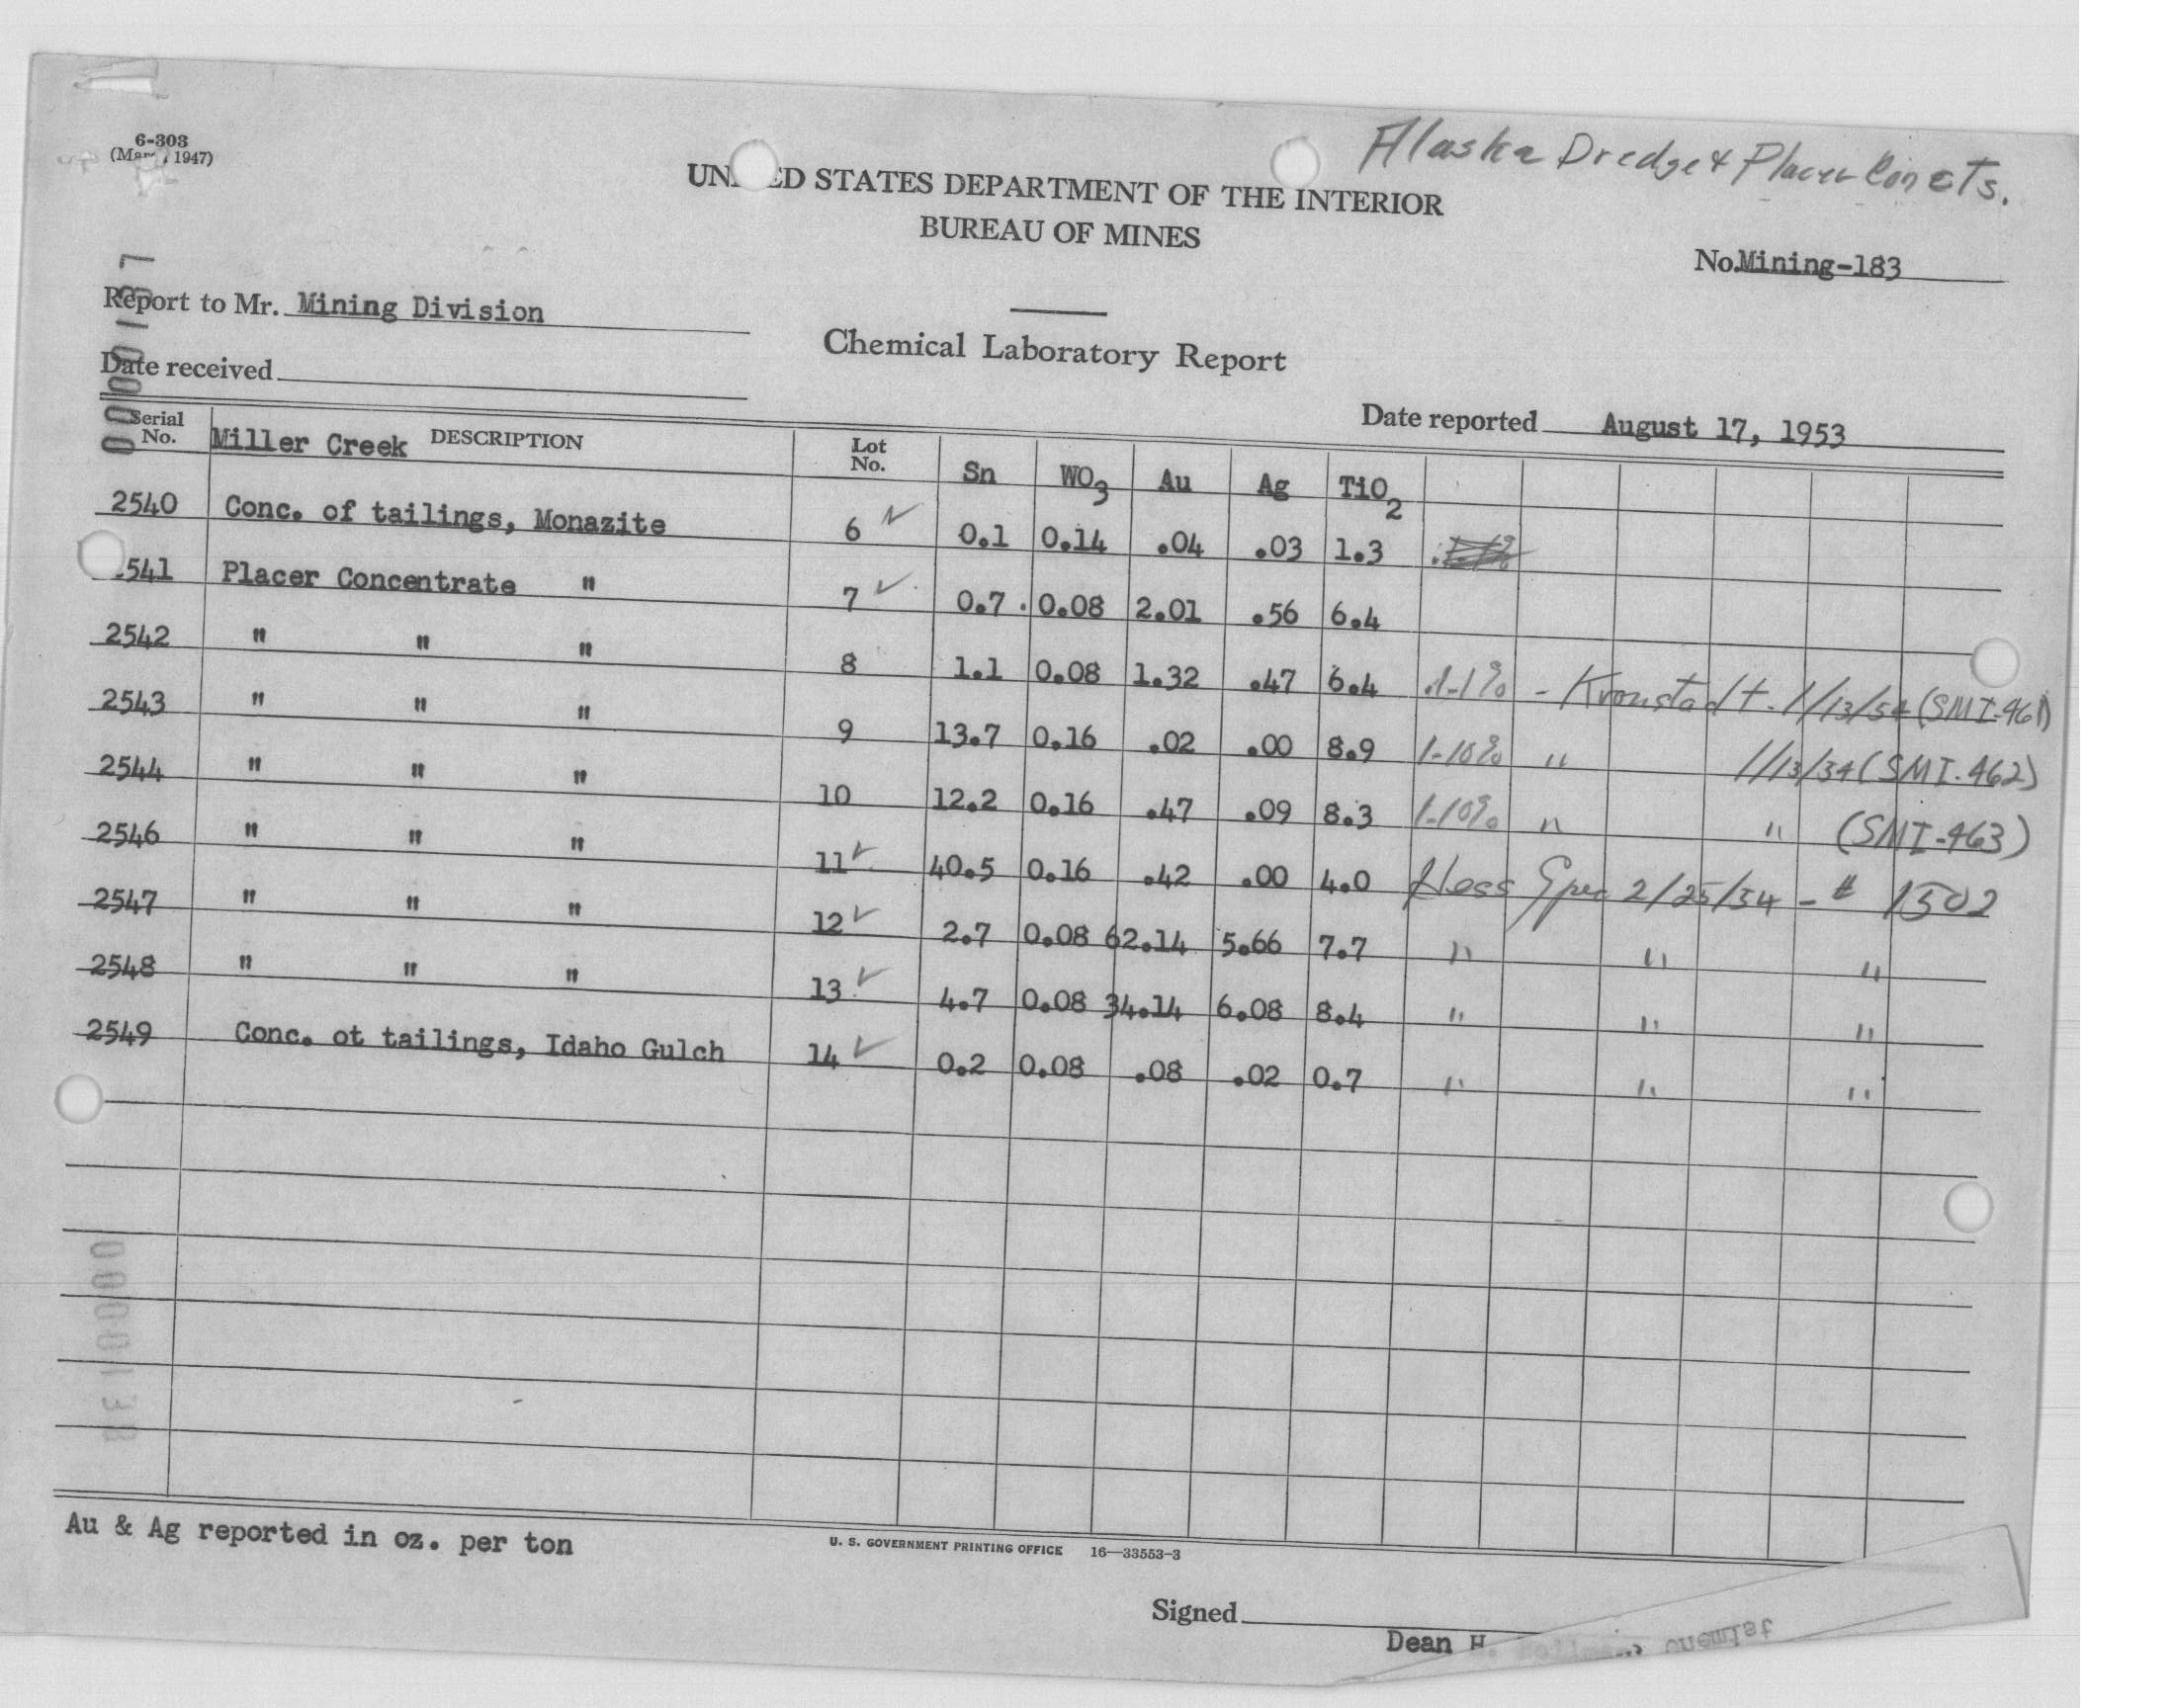 6-303
(Mar 1947)
Alaska Dredge & Placer Concts.
UN ED STATES DEPARTMENT OF THE INTERIOR
BUREAU OF MINES
No. Mining-183
Report to Mr. Mining Division
Chemical Laboratory Report
Date received
Date reported August 17, 1953
Serial No. Miller Creek DESCRIPTION Lot No. Sn WO3 Au Ag TiO2
2540 Conc. of tailings, Monazite 6 ✓ 0.1 0.14 .04 .03 1.3
541 Placer Concentrate " 7 ✓ 0.7 0.08 2.01 .56 6.4
2542 " " " 8 1.1 0.08 1.32 .47 6.4 .1-1% - Kronstadt. 1/13/54 (SMI-461)
2543 " " " 9 13.7 0.16 .02 .00 8.9 1-10% " 1/13/54 (SMI-462)
2544 " " " 10 12.2 0.16 .47 .09 8.3 1-10% " " (SMI-463)
2546 " " " 11 ✓ 40.5 0.16 .42 .00 4.0 Hess Spec 2/25/54 - # 1502
2547 " " " 12 ✓ 2.7 0.08 62.14 5.66 7.7 " " "
2548 " " " 13 ✓ 4.7 0.08 34.14 6.08 8.4 " " "
2549 Conc. ot tailings, Idaho Gulch 14 ✓ 0.2 0.08 .08 .02 0.7 " " "
0000137
0000138
Au & Ag reported in oz. per ton
U. S. GOVERNMENT PRINTING OFFICE 16—33553-3
Signed
Dean H. Chemist